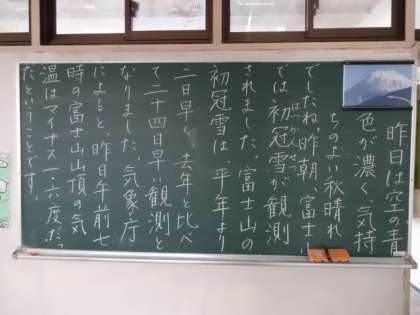 昨日は空の青
色が濃く、気持
ちのよい秋晴れ
でしたね。昨朝、富士山
では初冠雪が観測
はつかんせつ
されました。富士山の
初冠雪は、平年より
二日早く、去年と比べ
て二十四日早い観測と
なりました。気象庁
によると、昨日午前七
時の富士山山頂の気
温はマイナス一・六度だっ
たということです。